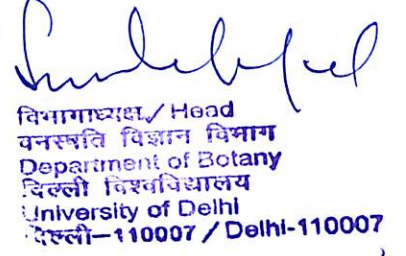 विभागाध्यक्ष / Head
वनस्पति विज्ञान विभाग
Department of Botany
दिल्ली विश्वविद्यालय
University of Delhi
दिल्ली-110007 / Delhi-110007